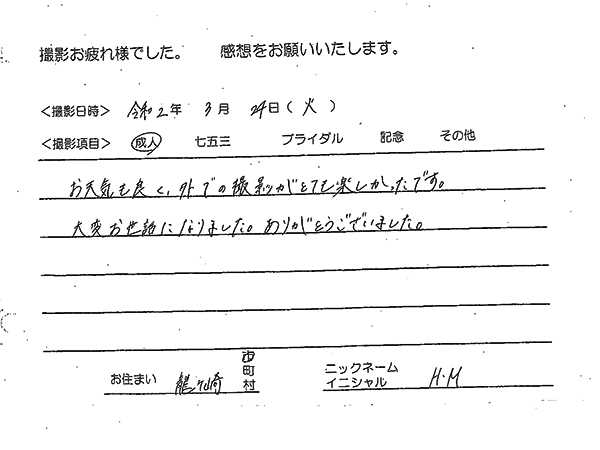 撮影お疲れ様でした。 感想をお願いいたします。
<撮影日時> 令和2年 3月 24日(火)
<撮影項目> 成人 七五三 ブライダル 記念 その他
お天気も良く、外での撮影がとても楽しかったです。
大変お世話になりました。ありがとうございました。
お住まい 龍ヶ崎 市町村 ニックネーム イニシャル H.M